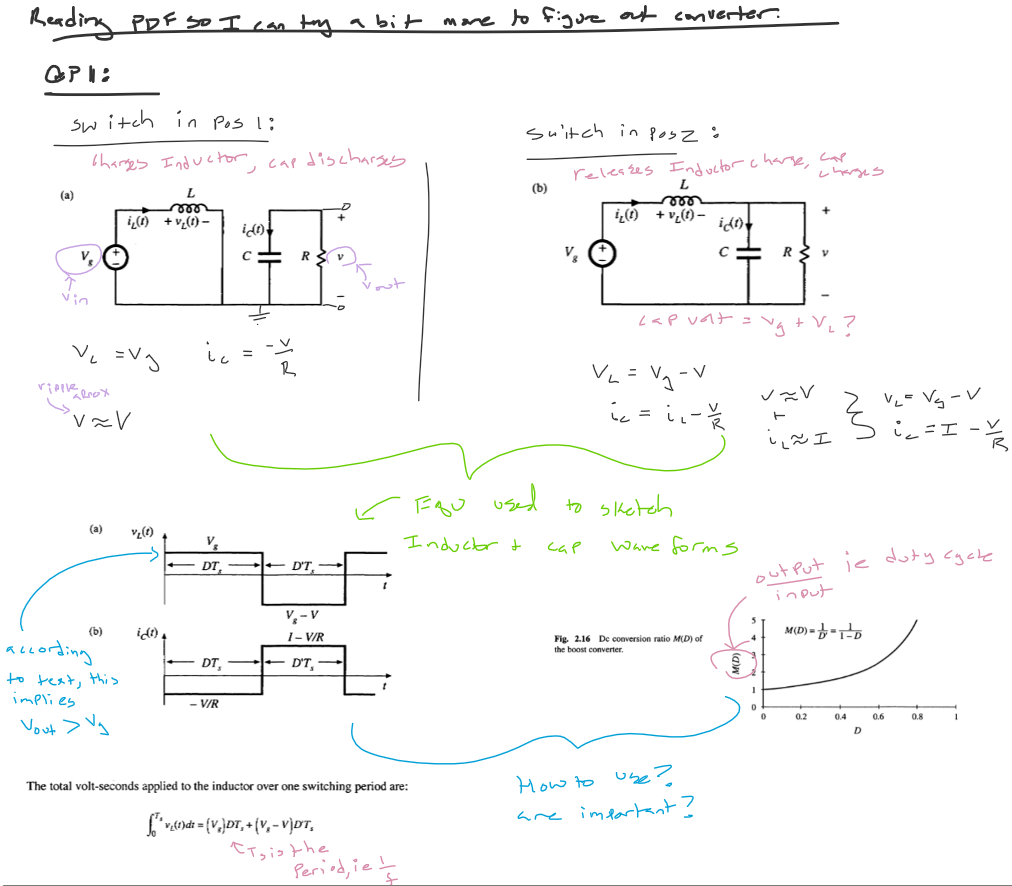 Reading PDF so I can try a bit more to figure out converter.
QP1:
switch in pos 1:
charges Inductor, cap discharges
(a)
L
i_L(t) + v_L(t) –
i_C(t)
V_g
+
–
C
R
v
+
–
Vin
Vout
V_L = V_g
i_c = -V/R
ripple approx
v ≈ V
switch in pos 2:
releases Inductor charge, cap charges
(b)
L
i_L(t) + v_L(t) –
i_C(t)
V_g
+
–
C
R
v
+
–
cap volt = V_g + V_L?
V_L = V_g - V
i_c = i_L - V/R
v ≈ V
+
i_L ≈ I
V_L = V_g - V
i_c = I - V/R
Equ used to sketch
Inductor + cap waveforms
(a)
v_L(t)
V_g
DT_s
D'T_s
t
V_g – V
(b)
i_C(t)
I – V/R
DT_s
D'T_s
t
– V/R
according
to text, this
implies
Vout > Vg
output / input ie duty cycle
Fig. 2.16 Dc conversion ratio M(D) of
the boost converter.
M(D) = 1/D' = 1/(1–D)
M(D)
5
4
3
2
1
0
0 0.2 0.4 0.6 0.8 1
D
How to use?
are important?
The total volt-seconds applied to the inductor over one switching period are:
∫₀^{T_s} v_L(t)dt = (V_g)DT_s + (V_g – V)D'T_s
T_s is the
Period, ie 1/f